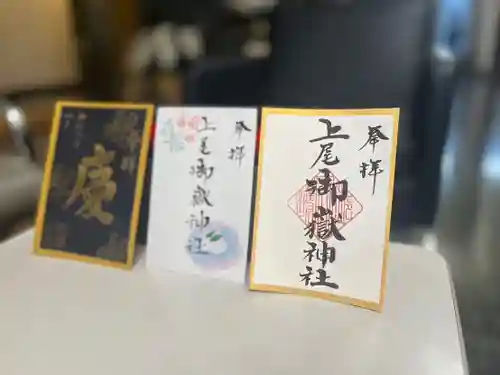 奉拝
上尾御嶽神社
奉拝
上尾御嶽神社
慶